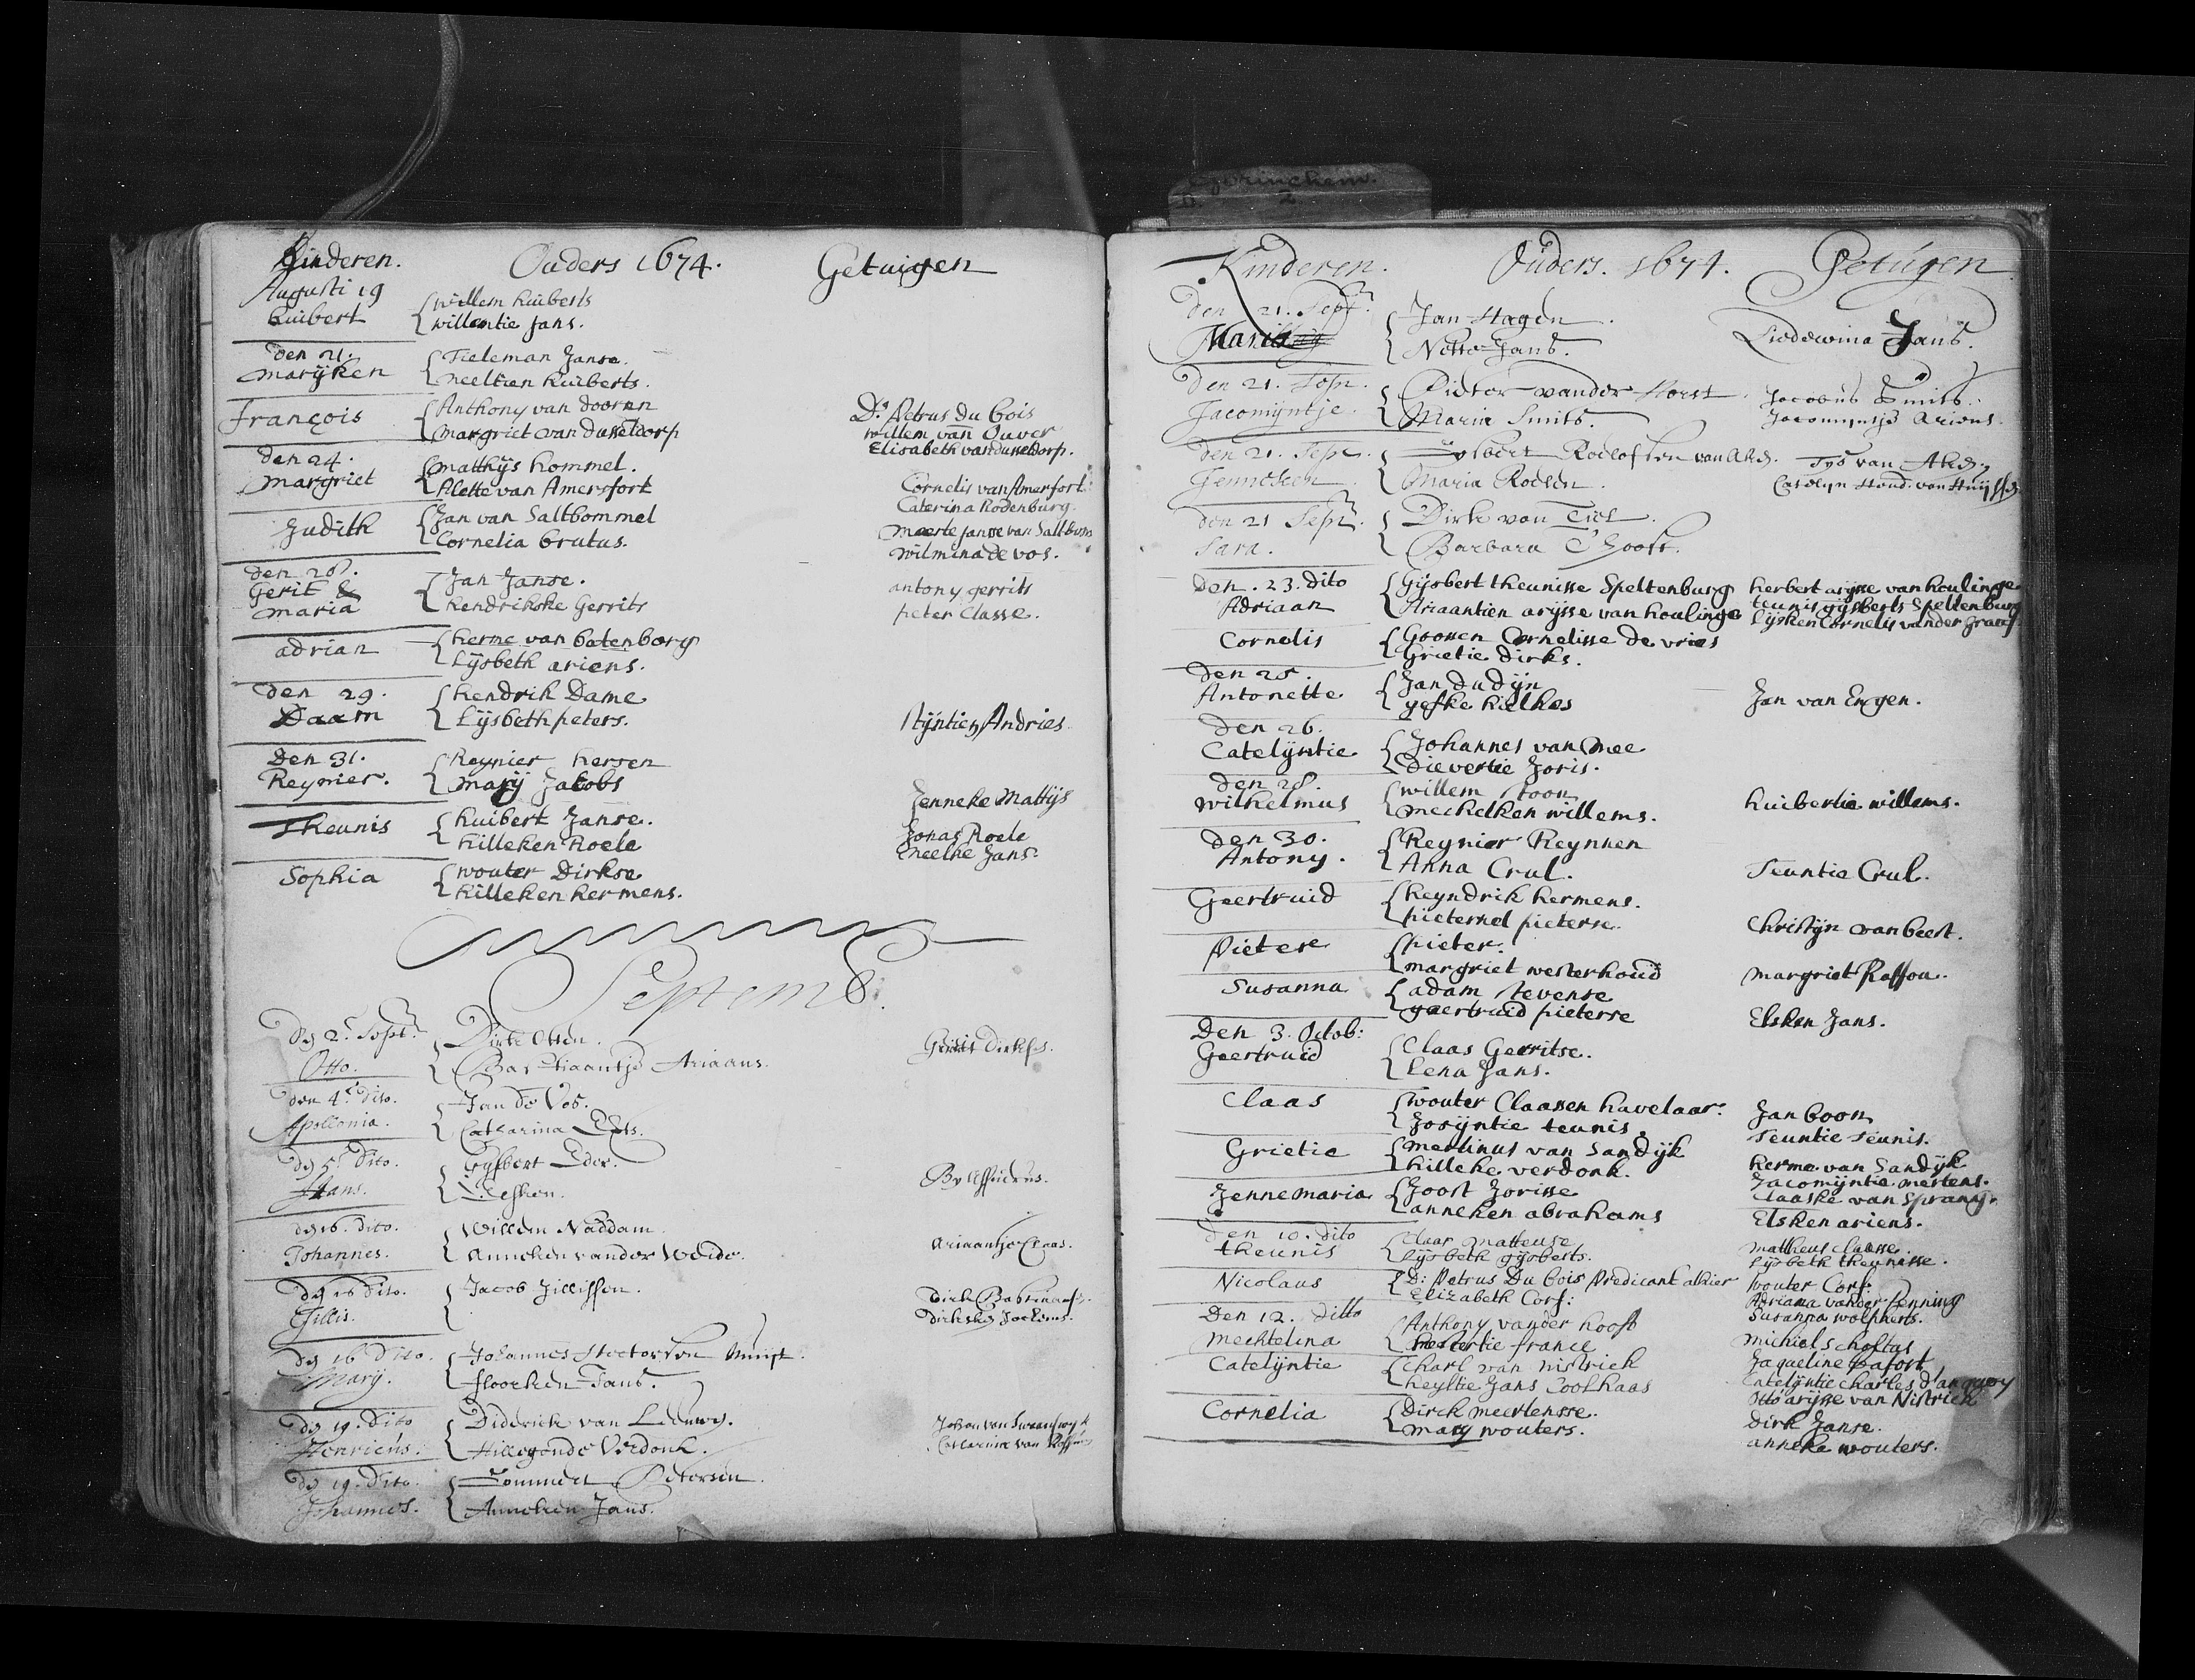 Gorinchem.
2
Kinderen. Ouders 1674. Getuigen
Augusti 19
Huibert
willem huiberts
willentie Jans.
den 21.
marijken
Tieleman Janse.
neeltien huiberts.
françois
Anthony van doornn
margriet van dusseldorp
Ds. Petrus du bois
willem van Ouver
Elisabeth van dusseldorp.
den 24.
margriet
matthijs hommel.
Alette van Amersfort
Cornelis van Amerfort
Caterina Rodenburg.
Judith
Jan van Saltbommel
Cornelia brutus.
meerte Janse van Saltbom
wilmina de vos.
den 26.
Gerit &
maria
Jan Janse.
hendrikske Gerrits
antony gerrits
pieter Classe.
adrian
herme van batenborg
Lijsbeth ariens.
den 29.
Daam
hendrik Dame
Lijsbeth peters.
Stijntien Andries
Den 31.
Reynier.
Reynier hersen
marij Jacobs
Jenneke Mattijs
Theunis
huibert Janse.
hilleken Roele
Jonas Roele
neelke Jans.
Sophia
wouter Dirkse
hilleken hermens.
Septemb.
Dirk Otten.
Otto.
Bastiaantje Ariaans.
Gerrit Dirksz.
den 4e dito.
Apollonia.
Jan de Vos.
Catharina
dito.
Gijsbert
Hans.
den 16. dito.
Johannes.
Willem Naddam.
Anneken vander Weide.
Ariaantje Claas.
den 16 dito.
Jillis.
Jacob Jillissen.
den 16 Dito.
Mary.
Johannes
floorken Jans.
den 19. Dito
Henricus.
Diderick van Leeuwe.
Hillegonde Verdonk.
Johan van Swaanswyk
Catharina van
den 19. Dito.
Johannes.
Pietersen
Anneken Jans.
Kinderen. Ouders. 1674. Getuigen
den 21. Sept.
Maria
Jan Hagen
Jans.
Liedewina Jans.
den 21. Sept.
Jacomijntje.
Pieter vander Horst
Maria Smits.
Jacobus Smits.
Jacomijntje Ariens.
den 21. Sept.
Jenneken
Roelofsen van
Maria Roesen.
Tys van
den 21 Sept.
Sara.
Dirk van Tiel
Barbara
den. 23. dito
Adriaan
Gijsbert theunisse Speltenburg
Ariaantien arijsse van houlinge
herbert arijsse van houlinge
teunis gijsberts Speltenburg
Lijsken Cornelis vander graaf
Cornelis
Goosen Cornelisse de vries
Grietie dirks.
den 25.
Antonette
Jan du dijn
yefke hielkes
Jan van Ergen.
Den 26.
Catelijntie
Johannes van Mee
Dievertie Joris.
den 28.
wilhelmus
willem Stoon
mechelken willems.
huibertie willems.
den 30.
Antony.
Reynier Reynnen
Anna Crul.
Teuntie Crul.
Geertruid
heyndrik hermens.
pieternel pieterse.
Christijn van beest.
Pieter
pieter.
margriet westerhoud
margriet
Susanna
adam stevense
geertruid pieterse
Elsken Jans.
Den 3. Octob:
Geertruid
Claas Gerritse.
Lena Jans.
Claas
wouter Claasen havelaar.
Josijntie teunis.
Jan boon
Teuntie teunis.
Grietie
mertinus van Sandijk
hilleke verdonk.
herme van Sandijk
Jacomijntie mertens.
Claaske van Sprang.
Jennemaria
Joost Jorisse
anneken abrahams
Elsken ariens.
den 10. dito
theunis
Claas matteuse
Lijsbeth gijsberts.
mattheus claasse
Lijsbeth theunisse.
Nicolaus
D: Petrus Du bois Predicant alhier
Elizabeth Corf:
wouter Corf.
Adriana vander Penning
Susanna wolpherts.
Den 12. ditto
mechtelina
Anthony vander hoost
france
michiel scholtus
Jaqueline
Catelijntie
Charl van nistrick
heyltie Jans Coolhaas
Catelijntie charles
Otto arijsse van Nistrick
Cornelia
Dirck meertensse.
marij wouters.
Dirk Janse.
anneke wouters.